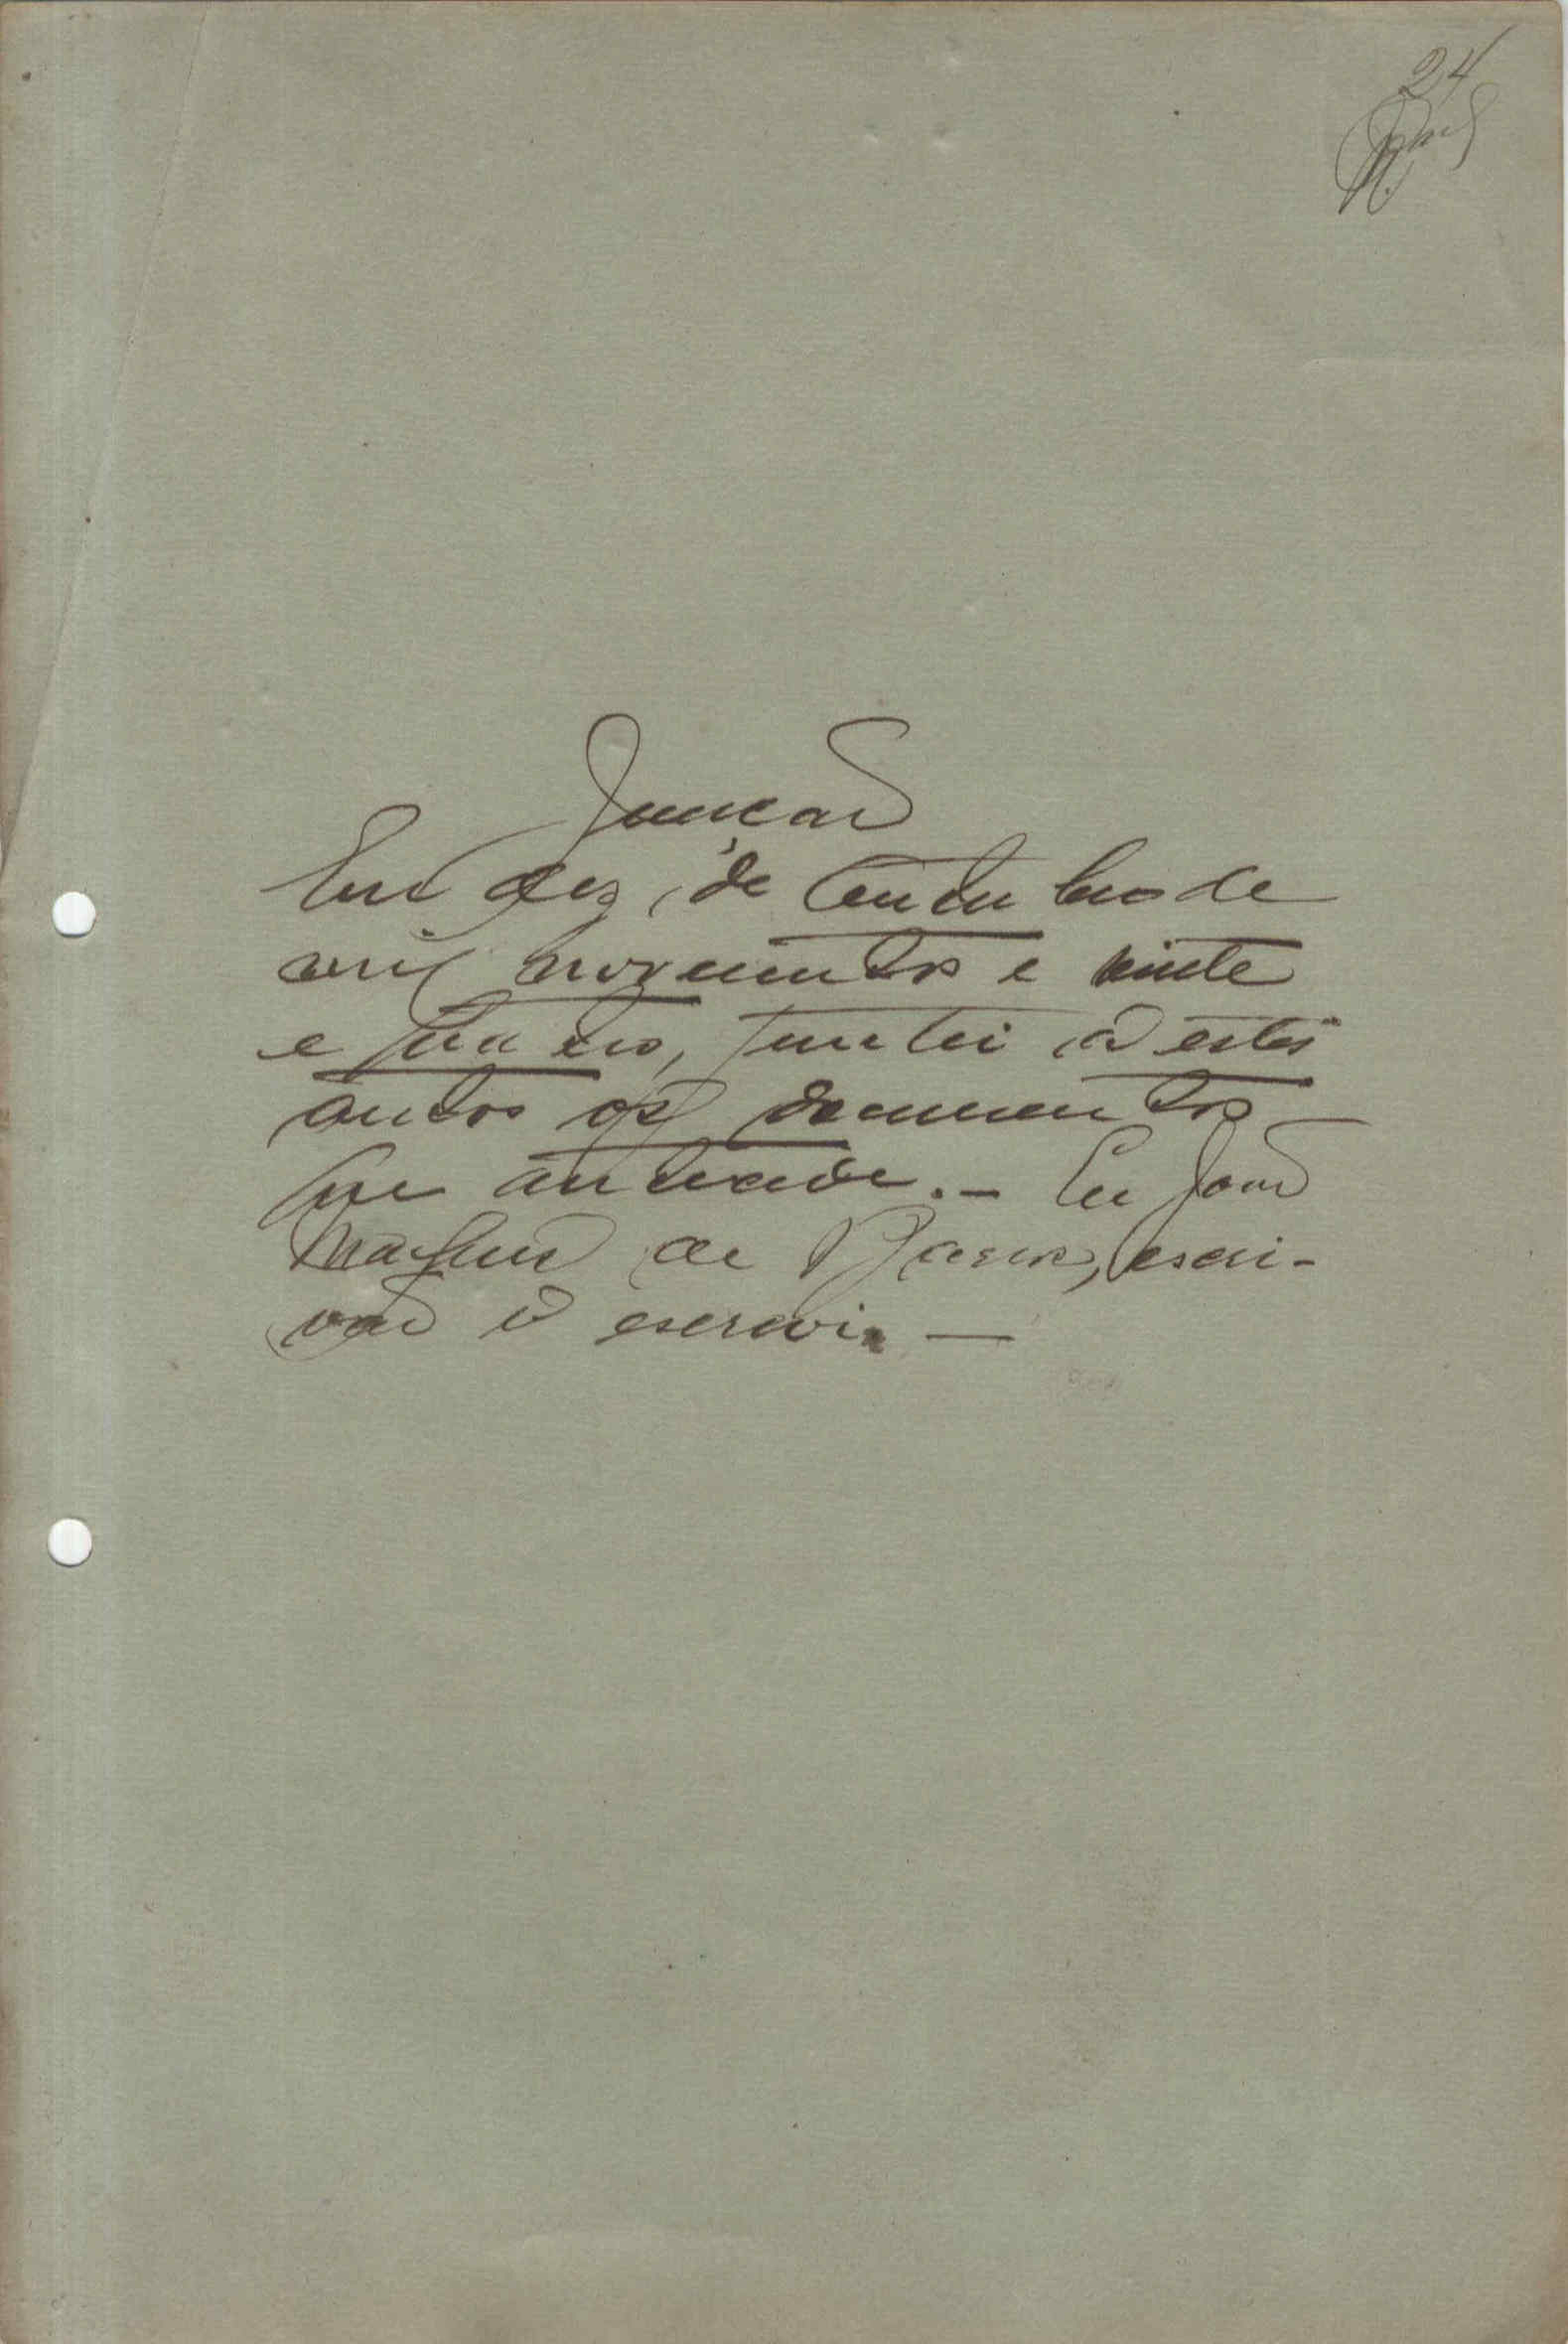 24
Juncção
Em dez, de Outubro de
mil novecentos e vinte
e quatro, juntei á estes
autos os documentos
que antecede. - Eu João
de Barros, escri-
vão o escrevi. —